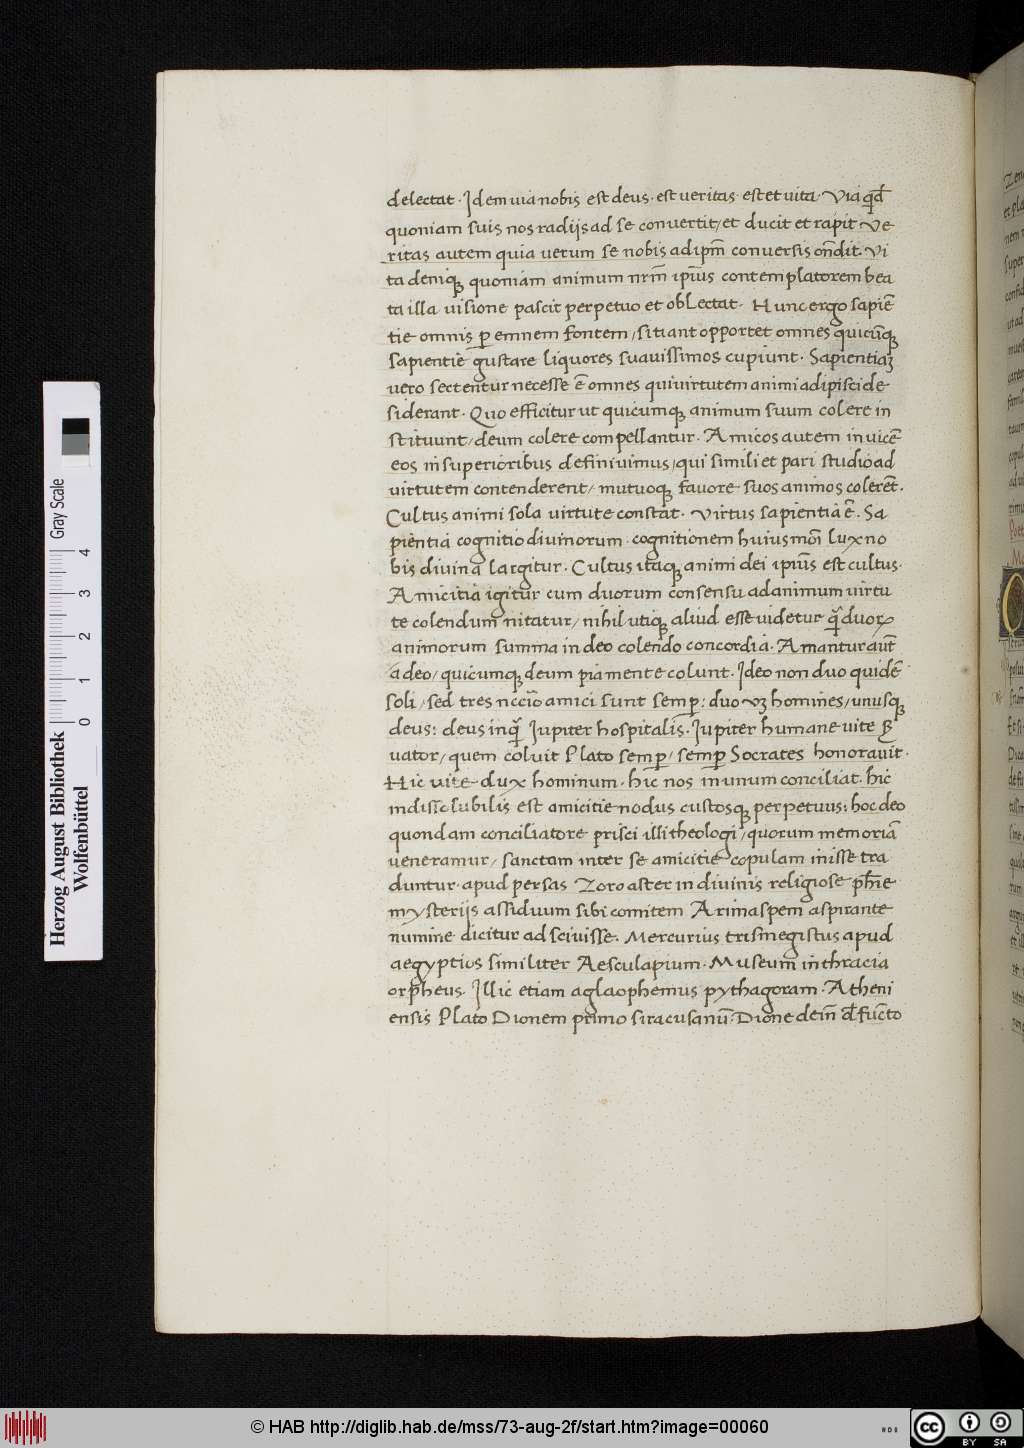 delectat. Idem uia nobis est deus. est ueritas. est et uita. Via qͥd
quoniam suis nos radiis ad se conuertit/et ducit et rapit Ve
ritas autem quia uerum se nobis ad ipm̅ conuersis on̅dit. Vi
ta deniqꝫ quoniam animum nrm̅ ipiꝰs contemplatorem bea
ta illa uisione pascit perpetuo et oblectat. Hunc ergo sapie̅
tie omnis ꝑemnem fontem/sitiant opportet omnes quicu̅qꝫ
sapientie gustare liquores suauissimos cupiunt. Sapientiaꝫ
uero sectentur necesse e̅ omnes qui uirtutem animi adipisci de
siderant. Quo efficitur ut quicumqꝫ animum suum colere in
stituunt/deum colere compellantur. Amicos autem inuice̅
eos in superioribus definiuimus/qui simili et pari studio ad
uirtutem contenderent/mutuoqꝫ fauore suos animos colere̅t.
Cultus animi sola uirtute constat. Virtus sapientia e̅. Sa
pientia cognitio diuinorum. cognitionem huiusmo̅i lux no
bis diuina largitur. Cultus itaqꝫ animi dei ipiꝰs est cultus.
Amicitia igitur cum duorum consensu ad animum uirtu
te colendum nitatur/nihil utiqꝫ aliud esse uidetur qͣ̅ duoꝝ
animorum summa in deo colendo concordia. Amantur aut̅
a deo/quicumqꝫ deum pia mente colunt. Ideo non duo quide̅
soli/sed tres ncc̅io amici sunt semꝑ: duo uꝫ homines/unusqꝫ
deus: deus inqͣ̅ Jupiter hospitalis. Jupiter humane uite ẜ
uator/quem coluit Plato semꝑ/semꝑ Socrates honorauit.
Hic uite dux hominum. hic nos in unum conciliat. hic
indissolubilis est amicitie nodus custosqꝫ perpetuus: hoc deo
quondam conciliatore prisci illi theologi/quorum memoria̅
ueneramur/sanctam inter se amicitie copulam inisse tra
duntur. apud persas Zoroaster in diuinis religiose ph̅ie
mysteriis assiduum sibi comitem Arimaspem aspirante
numine dicitur adsciuisse. Mercurius trismegistus apud
aegyptios similiter Aesculapium. Museum in thracia
orpheus. Illic etiam aglaophemus pythagoram. Atheni
ensis Plato Dionem primo siracusanu̅. Dione dein̅ defu̅cto
Herzog August Bibliothek
Wolfenbüttel
0 1 2 3 4
Gray Scale
© HAB http://diglib.hab.de/mss/73-aug-2f/start.htm?image=00060
HAB
cc BY SA